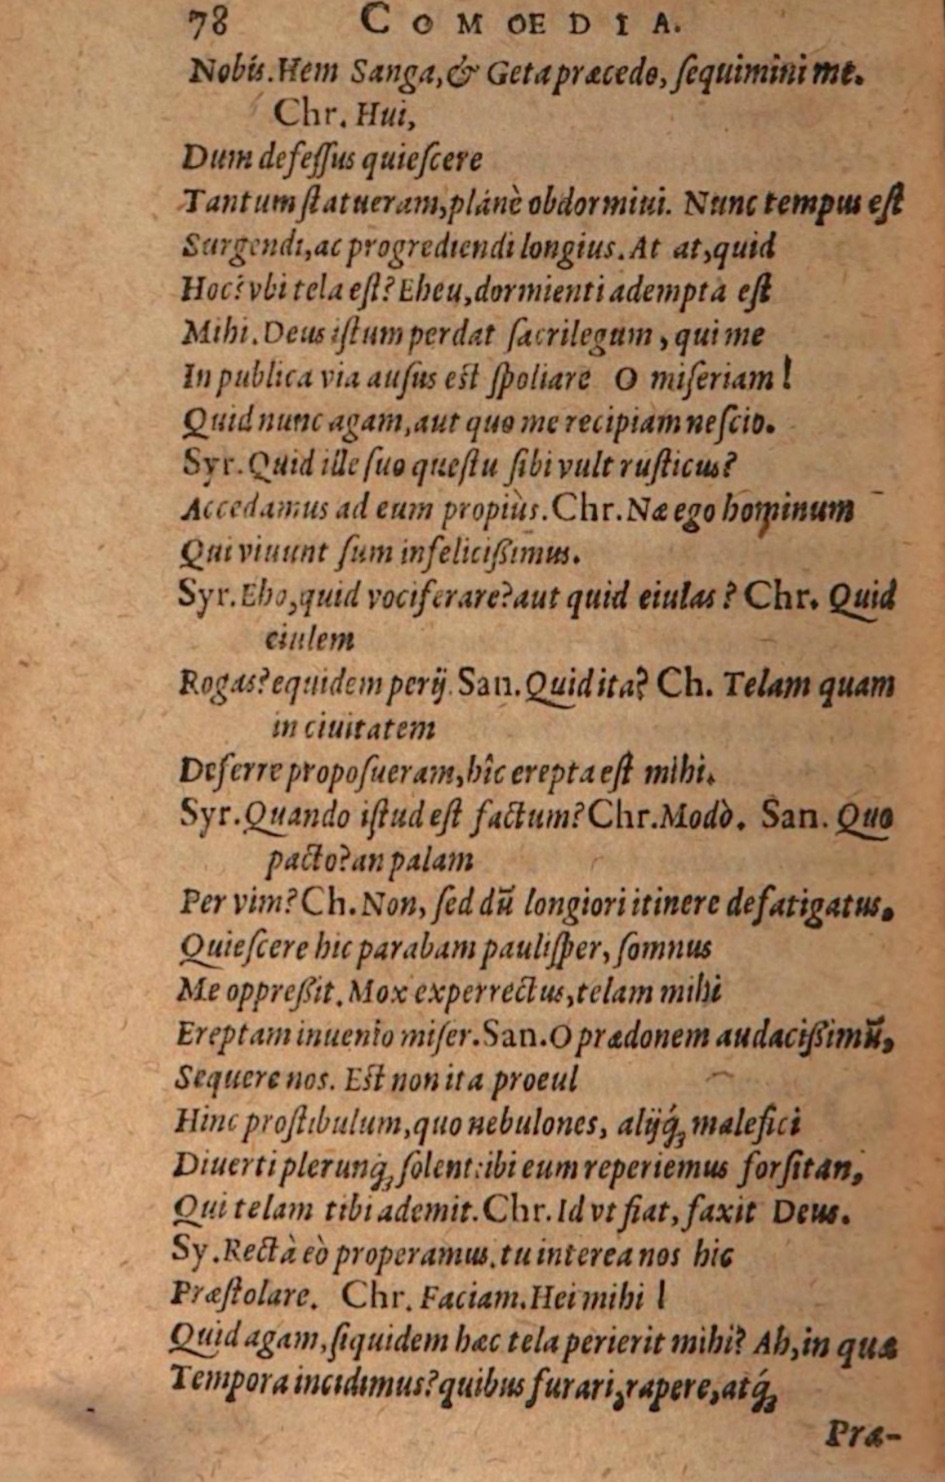 78 COMOEDIA.
Nobis. Hem Sanga, & Geta præcedo, ſequimini me.
Chr. Hui,
Dum defeſſus quieſcere
Tantum ſtatueram, planè obdormiui. Nunc tempus eſt
Surgendi, ac progrediendi longius. At at, quid
Hoc? vbi tela eſt? Eheu, dormienti adempta eſt
Mihi. Deus iſtum perdat ſacrilegum, qui me
In publica via auſus eſt ſpoliare O miſeriam!
Quid nunc agam, aut quo me recipiam neſcio.
Syr. Quid ille ſuo queſtu ſibi vult ruſticus?
Accedamus ad eum propiùs. Chr. Næ ego hominum
Qui viuunt ſum infeliciſsimus.
Syr. Eho, quid vociferare? aut quid eiulas? Chr. Quid
eiulem
Rogas? equidem perij. San. Quid ita? Ch. Telam quam
in ciuitatem
Deferre propoſueram, hîc erepta eſt mihi.
Syr. Quando iſtud eſt factum? Chr. Modò. San. Quo
pacto? an palam
Per vim? Ch. Non, ſed dũ longiori itinere defatigatus.
Quieſcere hic parabam pauliſper, ſomnus
Me oppreſsit. Mox experrectus, telam mihi
Ereptam inuenio miſer. San. O prædonem audaciſsimũ,
Sequere nos. Eſt non ita proeul
Hinc proſtibulum, quo nebulones, alijq́; malefici
Diuerti plerunq́; ſolent: ibi eum reperiemus forſitan,
Qui telam tibi ademit. Chr. Id vt fiat, faxit Deus.
Sy. Rectà eò properamus. tu interea nos hic
Præſtolare. Chr. Faciam. Hei mihi!
Quid agam, ſiquidem hæc tela perierit mihi? Ah, in quæ
Tempora incidimus? quibus furari, rapere, atq́;
Præ-